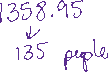 1358.95
↓
135 people